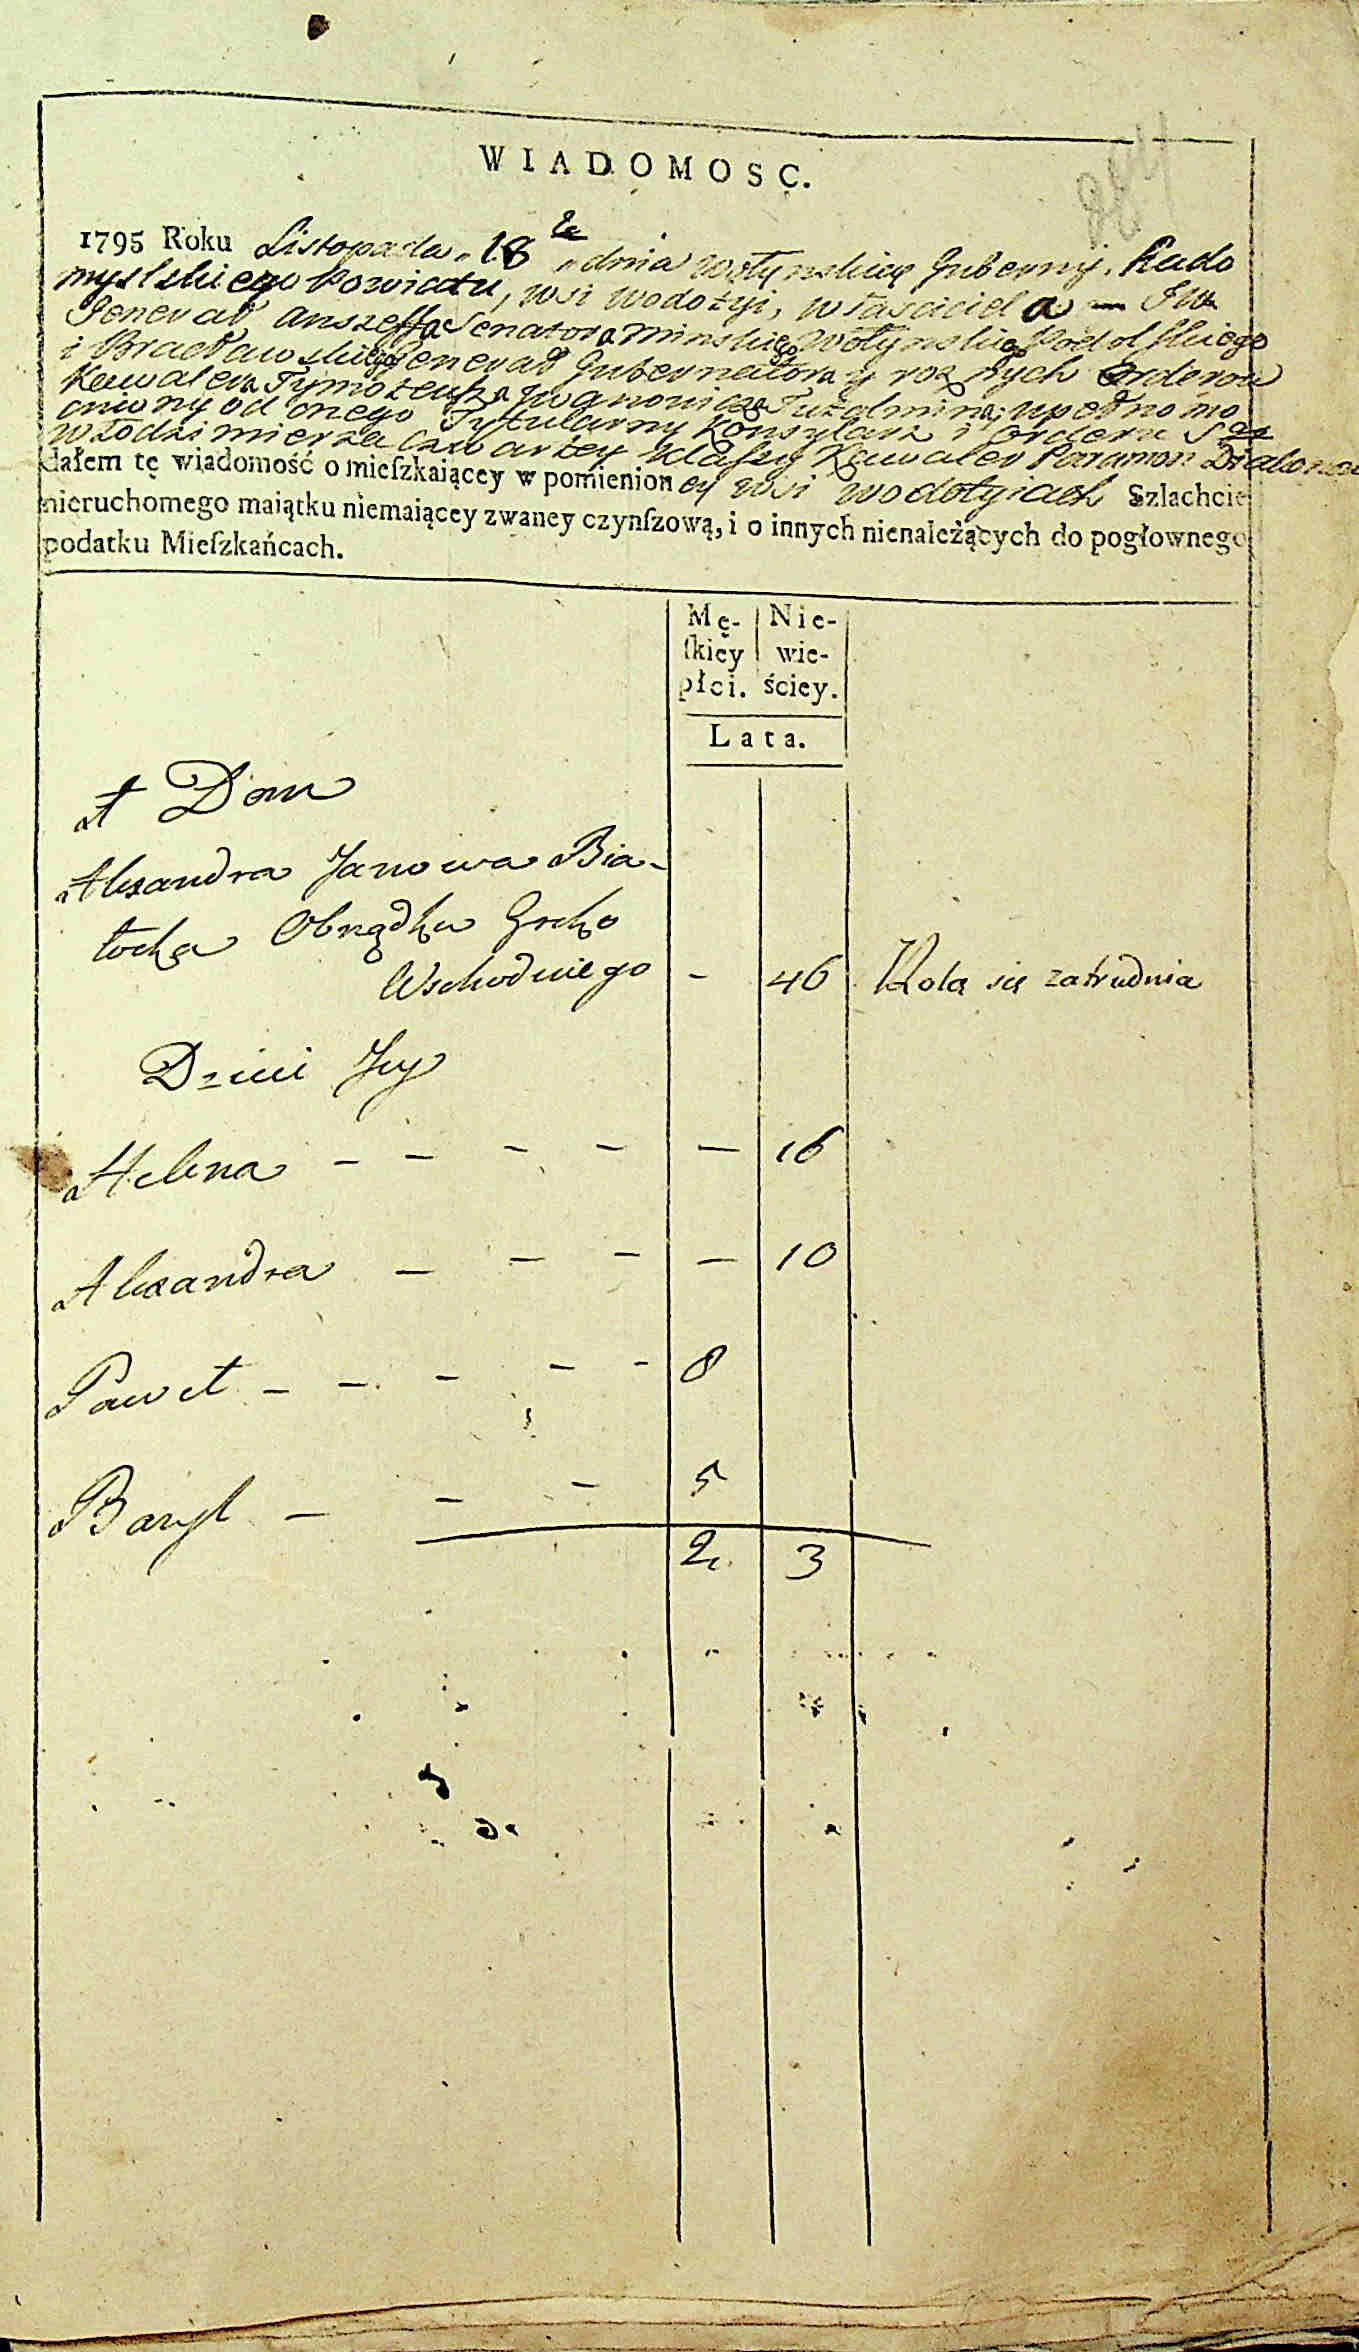 WIADOMOSC.
1795 Roku Listopada 18 dnia Wołynskiey Guberny. Rado
myslskiego Powiatu, wsi Wodotyi, własciciela — JW
Generał Anszeffa Senatora Minskiego Wołynskiego Podolskiego
i Bracławskiego Generał Gubernatora y roznych Orderow
Kawalera Tymoteusza Jwanowicza Tutolmina, upełnomo
cniony od onego Tytularny Konsyliarz i Orderu
Włodzimierza czwartey klassy Kawaler Paramon
dałem tę wiadomość o mieſzkaiącey w pomienioney wsi Wodotyiach Szlachcie
nieruchomego maiątku niemaiącey zwaney czynſzową, i o innych nienależących do pogłownego
podatku Mieſzkańcach.
Mę- Nie-
ſkiey wie-
płci. ściey.
Lata.
1 Dom
Alexandra Janowa Bia-
łocka Obrządku Grcko
Wschodniego - 46 Rolą się zatrudnia
Dzieci Jey
Helena - - - - — 16
Alexandra — — — — 10
Paweł - - - - - 8
Bazyl — — — 5
2 3